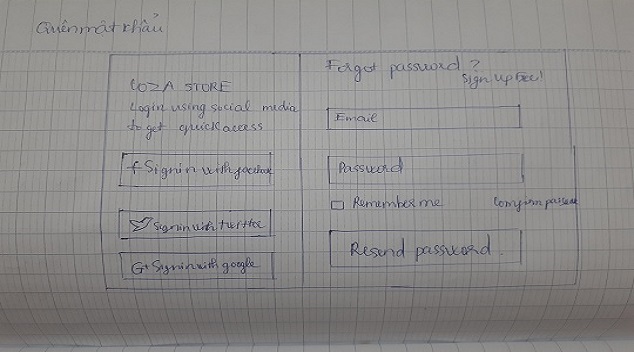 Quên mật khẩu
COZA STORE
Login using social media
to get quick access
f Sign in with facebook
Sign in with twitter
G+ Sign in with google
Forgot password ?
Sign up free!
Email
Password
Remember me
Resend password